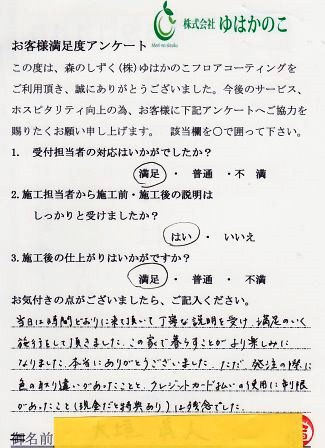 株式会社 ゆはかのこ
Mori no sizuku
お客様満足度アンケート
この度は、森のしずく(株)ゆはかのこフロアコーティングを
ご利用頂き、誠にありがとうございました。今後のサービス、
ホスピタリティ向上の為、お客様に下記アンケートへご協力を
賜りたくお願い申し上げます。 該当欄を〇で囲って下さい。
1. 受付担当者の対応はいかがでしたか?
満足 ・ 普通 ・不 満
2.施工担当者から施工前・施工後の説明は
しっかりと受けましたか?
はい ・ いいえ
3.施工後の仕上がりはいかがですか?
満足 ・ 普通 ・ 不満
お気付きの点がございましたら、ご記入ください。
当日は時間どおりに来て頂いて丁寧な説明を受け、満足のいく
施行をして頂きました。この家で暮らすことがより楽しみに
なりました。本当にありがとうございました。ただ、発注の際に
色の取り違いがあったことと、クレジットカード払いの使用に制限
があったこと(現金だと特典あり)は残念でした。
御名前